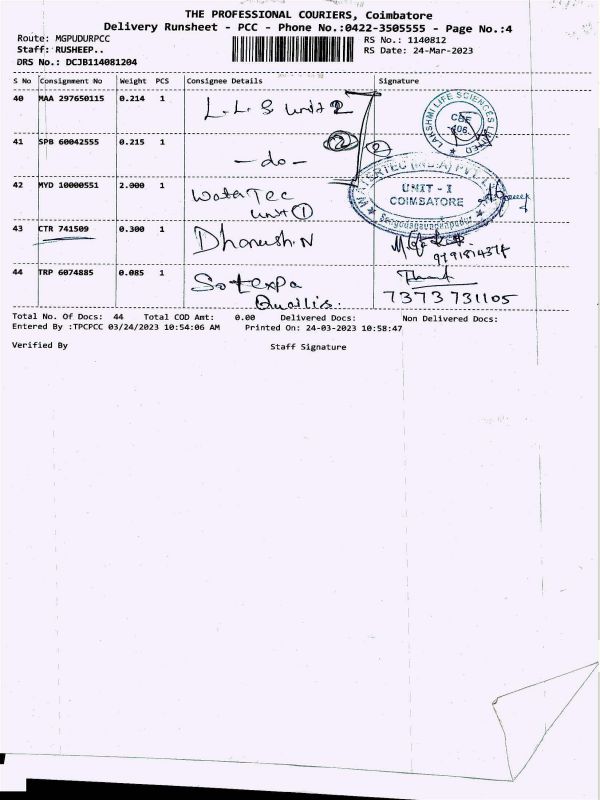 THE PROFESSIONAL COURIERS, Coimbatore
Delivery Runsheet - PCC - Phone No.:0422-3505555 - Page No.:4
Route: MGPUDURPCC RS No.: 1140812
Staff: RUSHEEP.. RS Date: 24-Mar-2023
DRS No.: DCJB114081204
S No Consignment No Weight PCS Consignee Details Signature
40 MAA 297650115 0.214 1 L.L.S unit 2
LAKSHMI LIFE SCIENCES LIMITED
CBE
41 SPB 60042555 0.215 1 -do- 2 2
42 MYD 10000551 2.000 1 WaterTec
unit 1
UNIT - I
COIMBATORE
43 CTR 741509 0.300 1 Dhanush.N
44 TRP 6074885 0.085 1
7373731105
Total No. Of Docs: 44 Total COD Amt: 0.00 Delivered Docs: Non Delivered Docs:
Entered By :TPCPCC 03/24/2023 10:54:06 AM Printed On: 24-03-2023 10:58:47
Verified By Staff Signature